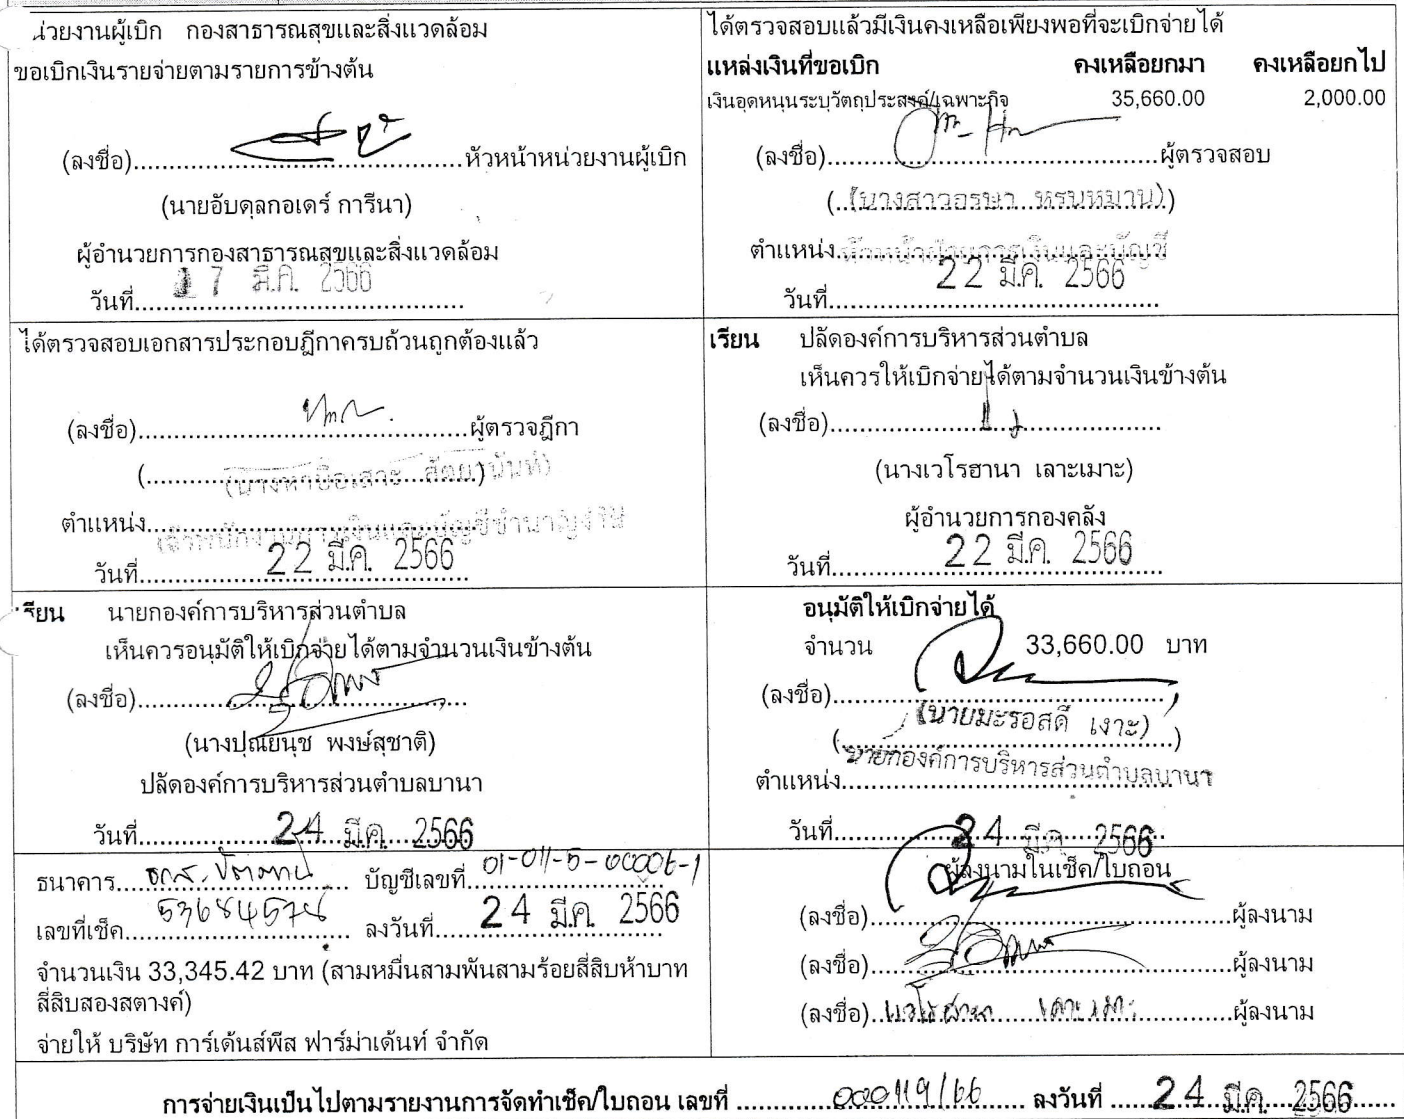 น่วยงานผู้เบิก กองสาธารณสุขและสิ่งแวดล้อม
ขอเบิกเงินรายจ่ายตามรายการข้างต้น
(ลงชื่อ)..............................หัวหน้าหน่วยงานผู้เบิก
(นายอับดุลกอเดร์ การีนา)
ผู้อำนวยการกองสาธารณสุขและสิ่งแวดล้อม
วันที่ 17 มี.ค. 2566
ได้ตรวจสอบแล้วมีเงินคงเหลือเพียงพอที่จะเบิกจ่ายได้
แหล่งเงินที่ขอเบิก คงเหลือยกมา คงเหลือยกไป
เงินอุดหนุนระบุวัตถุประสงค์/เฉพาะกิจ 35,660.00 2,000.00
(ลงชื่อ)..............................ผู้ตรวจสอบ
(นางสาวอรษา หรนหมาน)
ตำแหน่ง หัวหน้าฝ่ายการเงินและบัญชี
วันที่ 22 มี.ค. 2566
ได้ตรวจสอบเอกสารประกอบฎีกาครบถ้วนถูกต้องแล้ว
(ลงชื่อ)..............................ผู้ตรวจฎีกา
ตำแหน่ง เจ้าพนักงานการเงินและบัญชีชำนาญงาน
วันที่ 22 มี.ค. 2566
เรียน ปลัดองค์การบริหารส่วนตำบล
เห็นควรให้เบิกจ่ายได้ตามจำนวนเงินข้างต้น
(ลงชื่อ)..............................
(นางเวโรฮานา เลาะเมาะ)
ผู้อำนวยการกองคลัง
วันที่ 22 มี.ค. 2566
เรียน นายกองค์การบริหารส่วนตำบล
เห็นควรอนุมัติให้เบิกจ่ายได้ตามจำนวนเงินข้างต้น
(ลงชื่อ)..............................
(นางปุณยนุช พงษ์สุชาติ)
ปลัดองค์การบริหารส่วนตำบลบานา
วันที่ 24 มี.ค. 2566
อนุมัติให้เบิกจ่ายได้
จำนวน 33,660.00 บาท
(ลงชื่อ)..............................
(นายมะรอสดี เงาะ)
ตำแหน่ง นายกองค์การบริหารส่วนตำบลบานา
วันที่ 24 มี.ค. 2566
ธนาคาร ธกส. ปัตตานี บัญชีเลขที่ 01-011-5-00006-1
เลขที่เช็ค ลงวันที่ 24 มี.ค. 2566
จำนวนเงิน 33,345.42 บาท (สามหมื่นสามพันสามร้อยสี่สิบห้าบาท
สี่สิบสองสตางค์)
จ่ายให้ บริษัท การ์เด้นส์พีส ฟาร์ม่าเด้นท์ จำกัด
ผู้ลงนามในเช็ค/ใบถอน
(ลงชื่อ)..............................ผู้ลงนาม
(ลงชื่อ)..............................ผู้ลงนาม
(ลงชื่อ) เวโรฮานา เลาะเมาะ ผู้ลงนาม
การจ่ายเงินเป็นไปตามรายงานการจัดทำเช็ค/ใบถอน เลขที่ 000119/66 ลงวันที่ 24 มี.ค. 2566